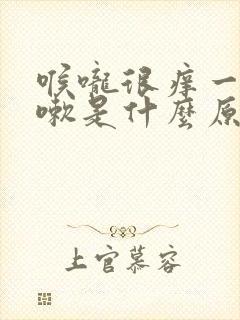 喉嚨很痒一
嗽是什麼原
上官慕容